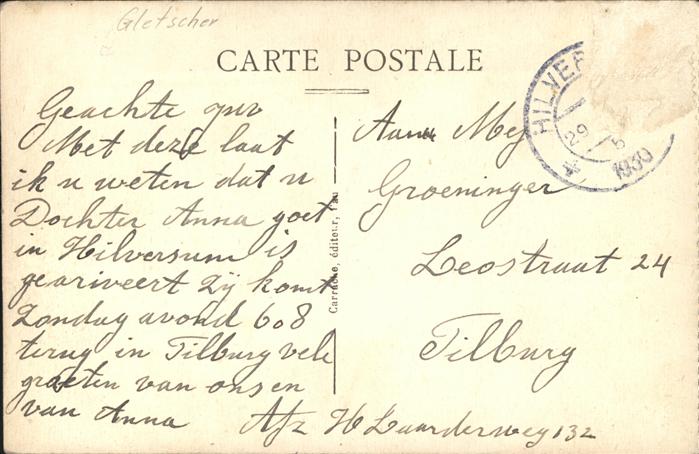 Gletscher
CARTE POSTALE
HILVER
29 5
1930
Geachte
Met deze laat
ik u weten dat u
Dochter Anna goet
in Hilversum is
geariveert Zij komt
Zondag avond 6 08
terug in Tilburg vele
groeten van ons en
van Anna
Carrache, éditeur, Pau
Aan Mej
Groeninger
Leostraat 24
Tilburg
Afz H Laarderweg 132